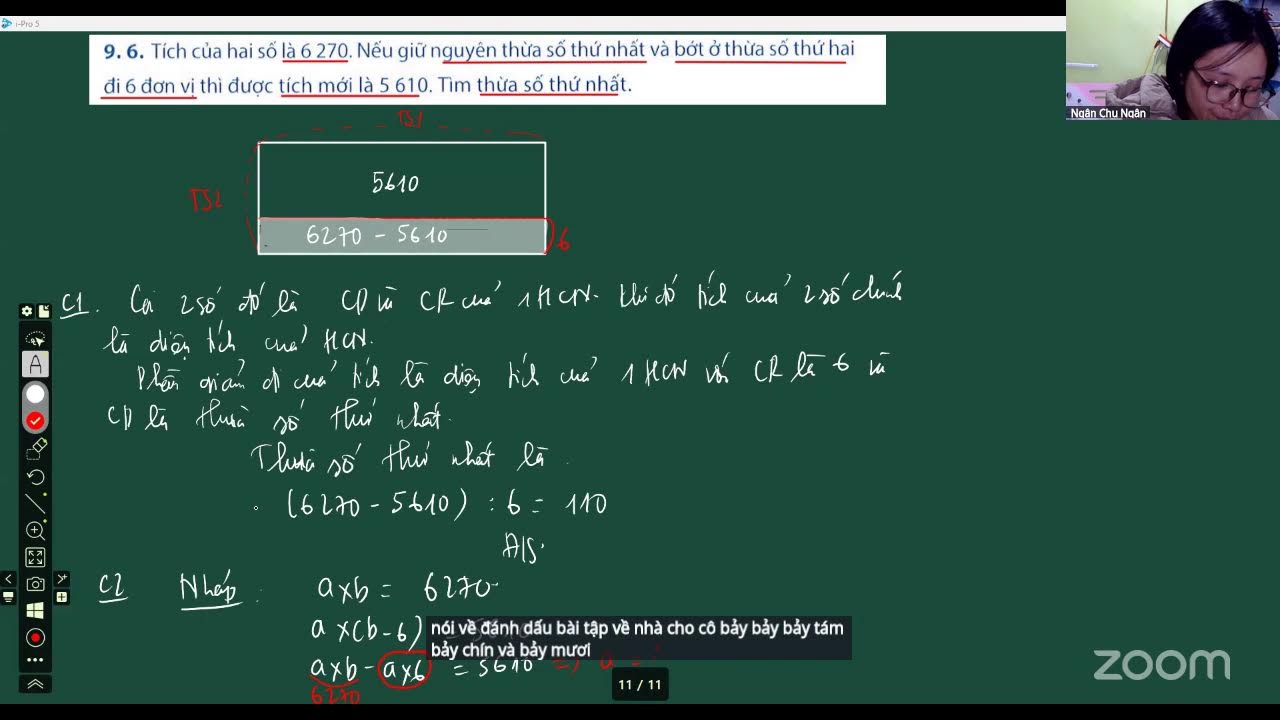 i-Pro 5
9. 6. Tích của hai số là 6 270. Nếu giữ nguyên thừa số thứ nhất và bớt ở thừa số thứ hai
đi 6 đơn vị thì được tích mới là 5 610. Tìm thừa số thứ nhất.
Ngân Chu Ngân
TS1
5610
TS2
6270 - 5610
6
C1. Coi 2 số đó là CD và CR của 1 HCN. Khi đó tích của 2 số chính
là diện tích của HCN.
Phần giảm đi của tích là diện tích của 1 HCN với CR là 6 và
CD là thừa số thứ nhất.
Thừa số thứ nhất là
(6270 - 5610) : 6 = 110
Đ/S:
C2 Nháp: a x b = 6270
a x (b - 6)
nói về đánh dấu bài tập về nhà cho cô bảy bảy bảy tám
bảy chín và bảy mươi
a x b - a x 6 = 5610 => a =
6270
11 / 11
zoom